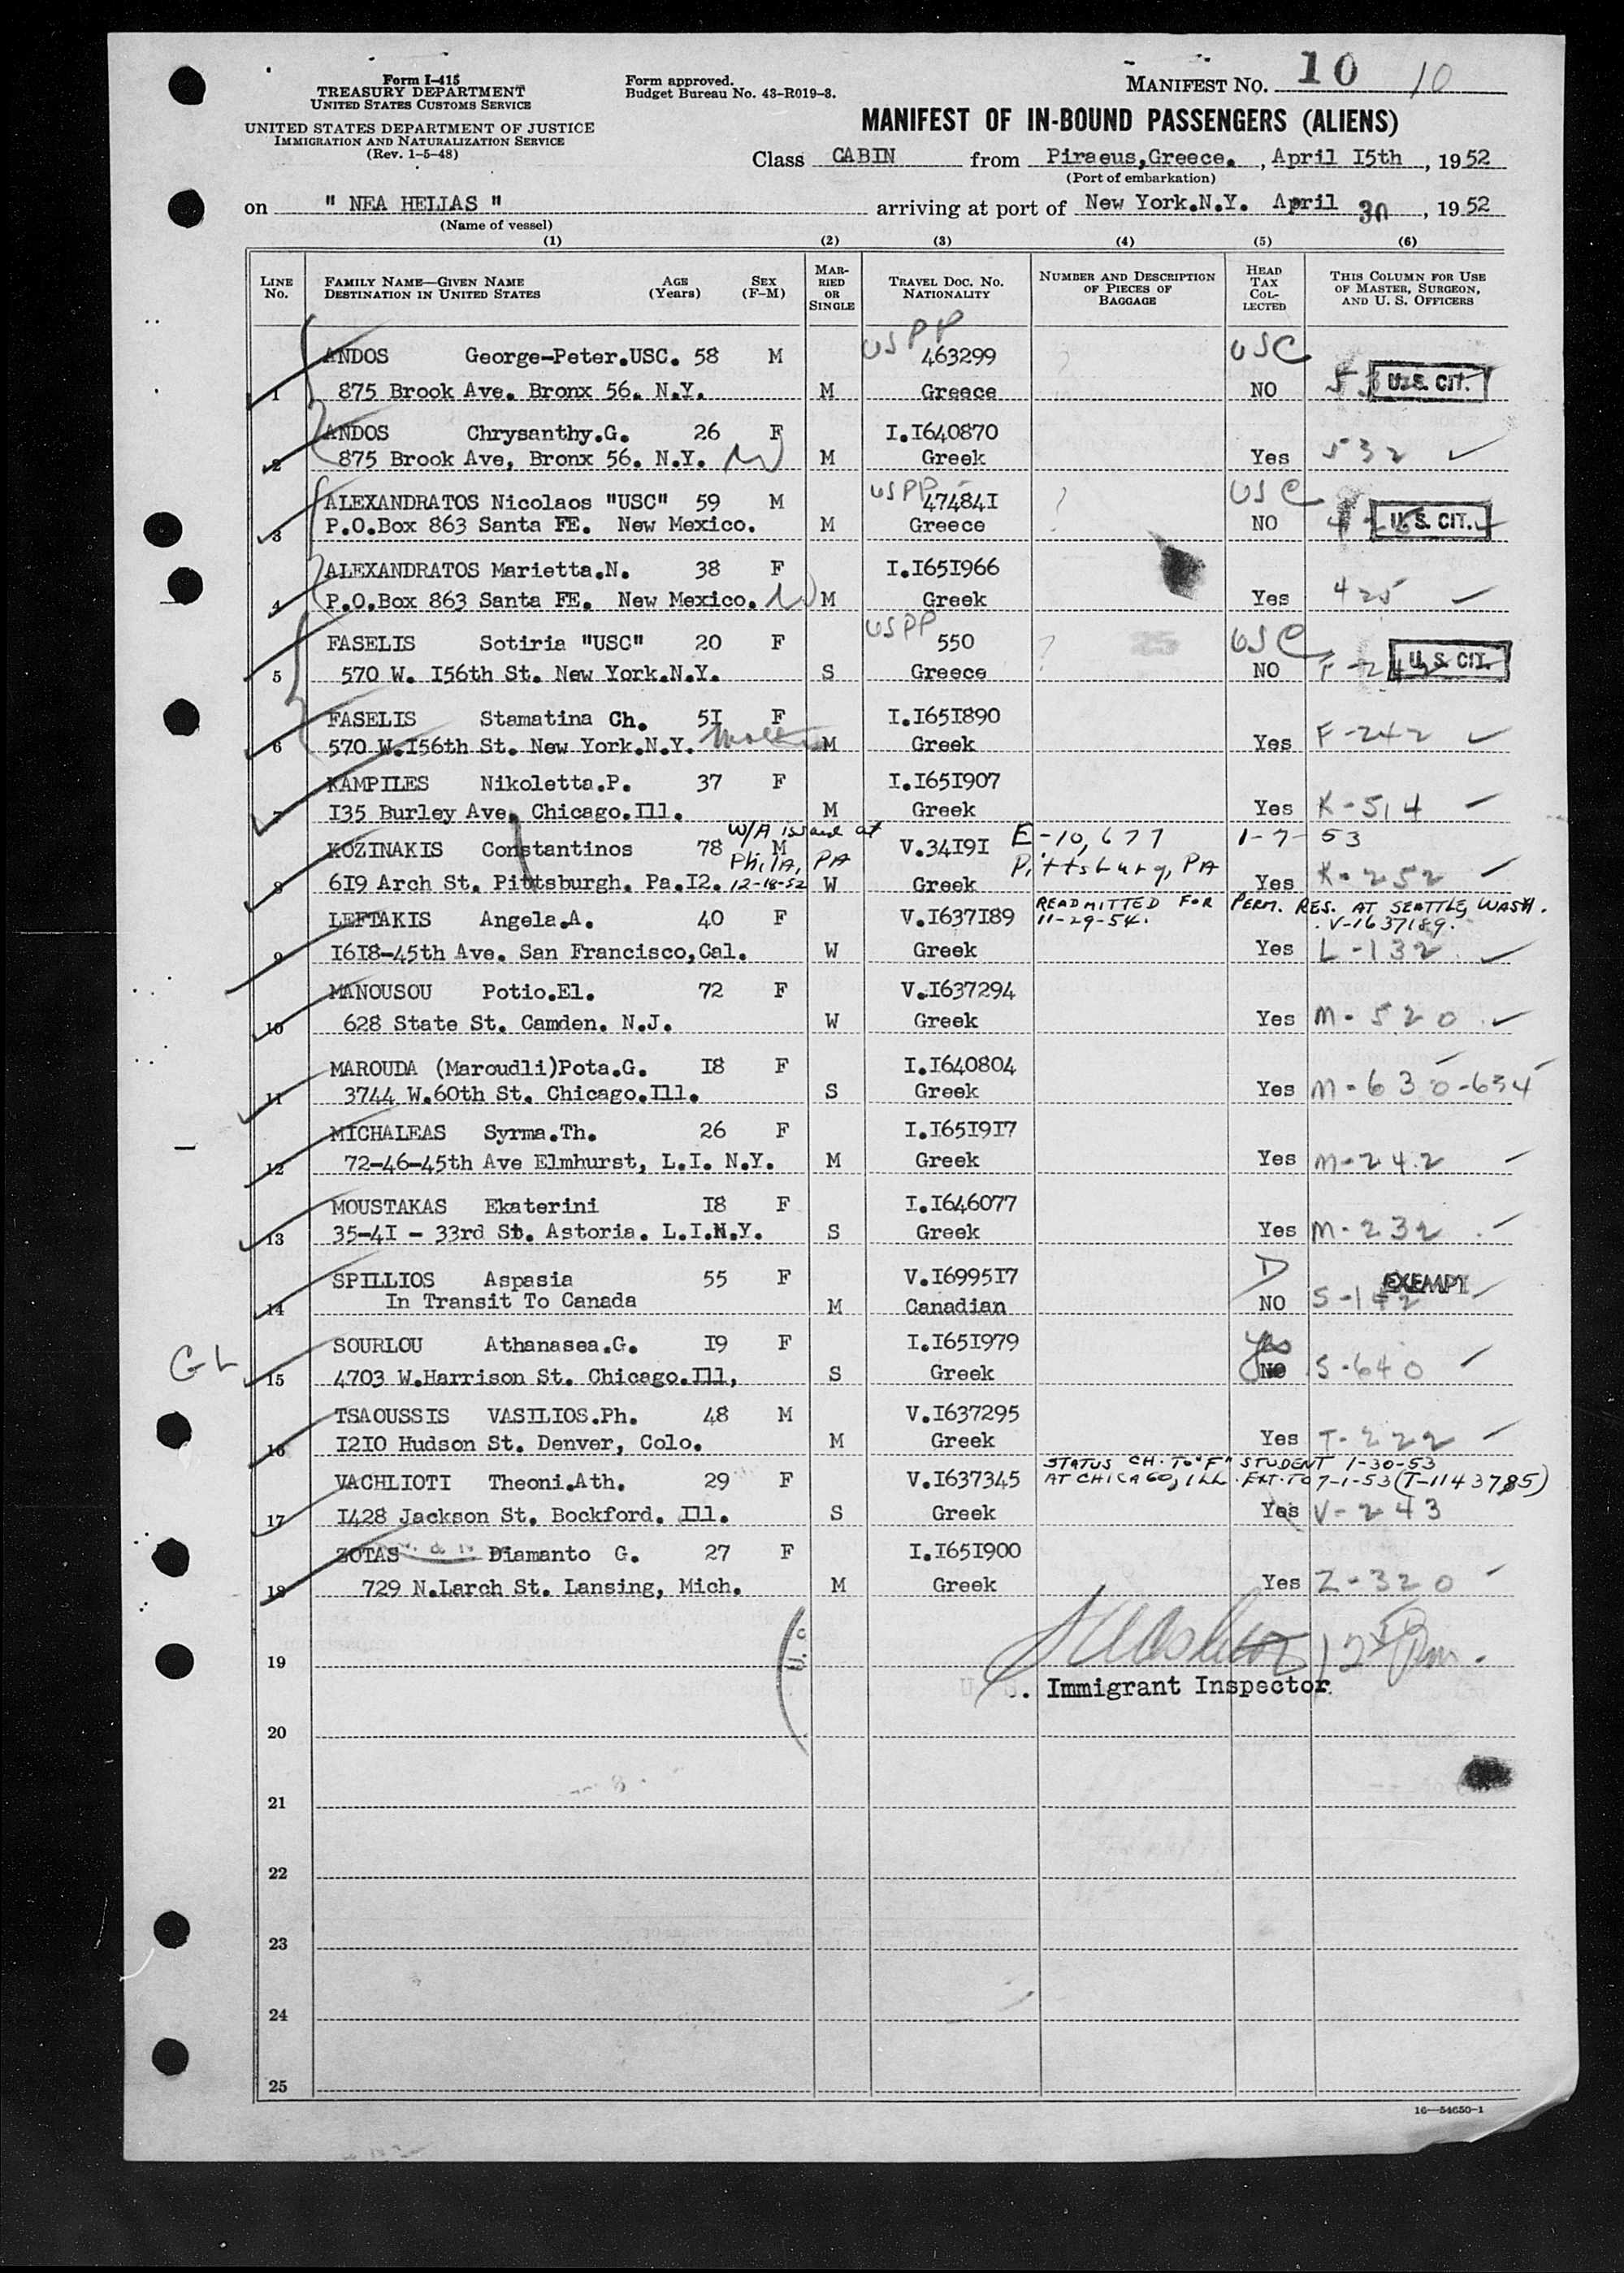 Form I-415
TREASURY DEPARTMENT
UNITED STATES CUSTOMS SERVICE
UNITED STATES DEPARTMENT OF JUSTICE
IMMIGRATION AND NATURALIZATION SERVICE
(Rev. 1-5-48)
Form approved.
Budget Bureau No. 43-R019-3.
MANIFEST NO. 10 10
MANIFEST OF IN-BOUND PASSENGERS (ALIENS)
Class CABIN from Piraeus,Greece. , April I5th , 1952
(Port of embarkation)
on " NEA HELIAS " arriving at port of New York.N.Y. April 30 , 1952
(Name of vessel)
(1) (2) (3) (4) (5) (6)
LINE No. FAMILY NAME—GIVEN NAME DESTINATION IN UNITED STATES AGE (Years) SEX (F-M) MARRIED OR SINGLE TRAVEL DOC. NO. NATIONALITY NUMBER AND DESCRIPTION OF PIECES OF BAGGAGE HEAD TAX COLLECTED THIS COLUMN FOR USE OF MASTER, SURGEON, AND U. S. OFFICERS
USPP USC
ANDOS George-Peter.USC. 58 M 463299 ?
1 875 Brook Ave. Bronx 56. N.Y. M Greece NO U.S. CIT.
ANDOS Chrysanthy.G. 26 F I.I640870
2 875 Brook Ave, Bronx 56. N.Y. M Greek Yes 532
USPP USC
ALEXANDRATOS Nicolaos "USC" 59 M 47484I ?
3 P.O.Box 863 Santa FE. New Mexico. M Greece NO U.S. CIT.
ALEXANDRATOS Marietta.N. 38 F I.I65I966
4 P.O.Box 863 Santa FE. New Mexico. M Greek Yes 425
USPP USC
FASELIS Sotiria "USC" 20 F 550 ? 25
5 570 W. I56th St. New York.N.Y. S Greece NO F-242 U.S. CIT.
FASELIS Stamatina Ch. 5I F I.I65I890
6 570 W.I56th St. New York.N.Y. M Greek Yes F-242
KAMPILES Nikoletta.P. 37 F I.I65I907
7 I35 Burley Ave. Chicago.Ill. M Greek Yes K-514
W/A issued at E-10,677 1-7-53
KOZINAKIS Constantinos 78 M V.34I9I
Phila, PA Pittsburg, PA
8 6I9 Arch St. Pittsburgh. Pa.I2. 12-18-52 W Greek Yes K-252
READMITTED FOR PERM. RES. AT SEATTLE, WASH.
LEFTAKIS Angela.A. 40 F V.I637I89 11-29-54. V-1637189.
9 I6I8-45th Ave. San Francisco,Cal. W Greek Yes L-132
MANOUSOU Potio.El. 72 F V.I637294
10 628 State St. Camden. N.J. W Greek Yes M-520
MAROUDA (Maroudli)Pota.G. I8 F I.I640804
11 3744 W.60th St. Chicago.Ill. S Greek Yes M-630-634
MICHALEAS Syrma.Th. 26 F I.I65I9I7
12 72-46-45th Ave Elmhurst, L.I. N.Y. M Greek Yes M-242
MOUSTAKAS Ekaterini I8 F I.I646077
13 35-4I - 33rd St. Astoria. L.I.N.Y. S Greek Yes M-232
SPILLIOS Aspasia 55 F V.I6995I7 D EXEMPT
14 In Transit To Canada M Canadian NO S-142
SOURLOU Athanasea.G. I9 F I.I65I979 yes
GL 15 4703 W.Harrison St. Chicago.Ill, S Greek NO S-640
TSAOUSSIS VASILIOS.Ph. 48 M V.I637295
16 I2I0 Hudson St. Denver, Colo. M Greek Yes T-222
STATUS CH. TO "F" STUDENT 1-30-53
VACHLIOTI Theoni.Ath. 29 F V.I637345 AT CHICAGO, ILL. EXT. TO 7-1-53 (T-1143785)
17 I428 Jackson St. Bockford. Ill. S Greek Yes V-243
ZOTAS Diamanto G. 27 F I.I65I900
18 729 N.Larch St. Lansing, Mich. M Greek Yes Z-320
19
U. S. Immigrant Inspector
20
21
22
23
24
25
16—54650-1